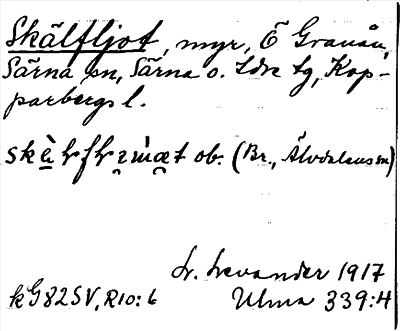 Skälfljot, myr, Ö Granån,
Särna sn, Särna o. Idre tg, Kop-
parbergs l.
ob. (Br., Älvdalens sn)
L. Levander 1917
kG82SV, R10:6 Ulma 339:4